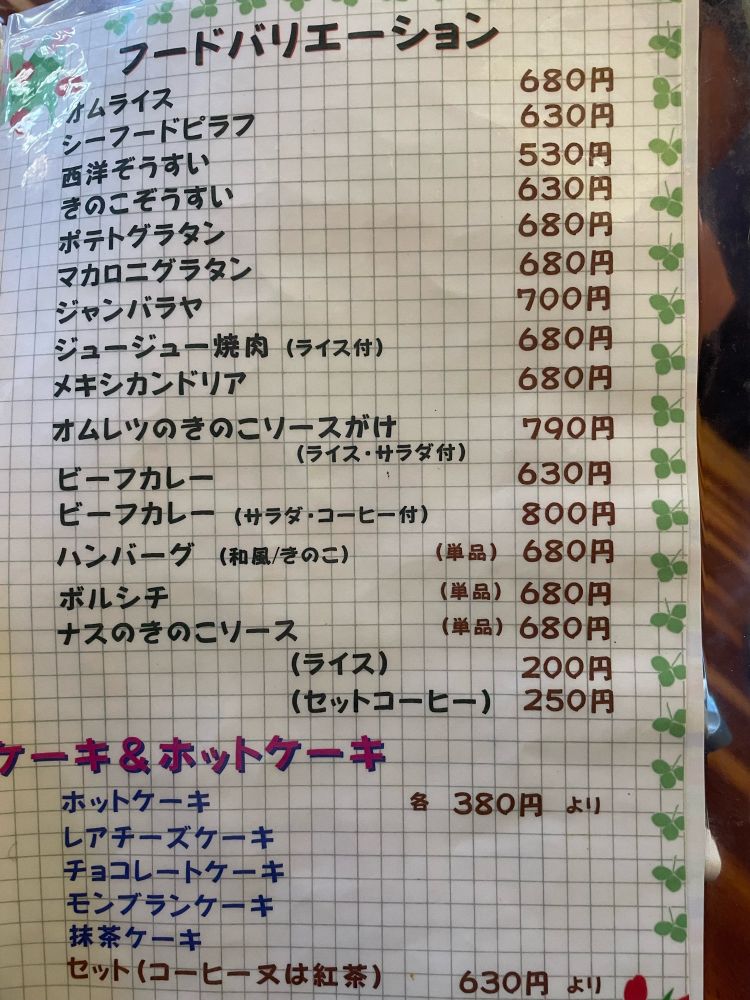 フードバリエーション
オムライス 680円
シーフードピラフ 630円
西洋ぞうすい 530円
きのこぞうすい 630円
ポテトグラタン 680円
マカロニグラタン 680円
ジャンバラヤ 700円
ジュージュー焼肉 (ライス付) 680円
メキシカンドリア 680円
オムレツのきのこソースがけ 790円
(ライス・サラダ付)
ビーフカレー 630円
ビーフカレー (サラダ・コーヒー付) 800円
ハンバーグ (和風/きのこ) (単品) 680円
ボルシチ (単品) 680円
ナスのきのこソース (単品) 680円
(ライス) 200円
(セットコーヒー) 250円
ケーキ&ホットケーキ
ホットケーキ 各 380円 より
レアチーズケーキ
チョコレートケーキ
モンブランケーキ
抹茶ケーキ
セット(コーヒー又は紅茶) 630円 より